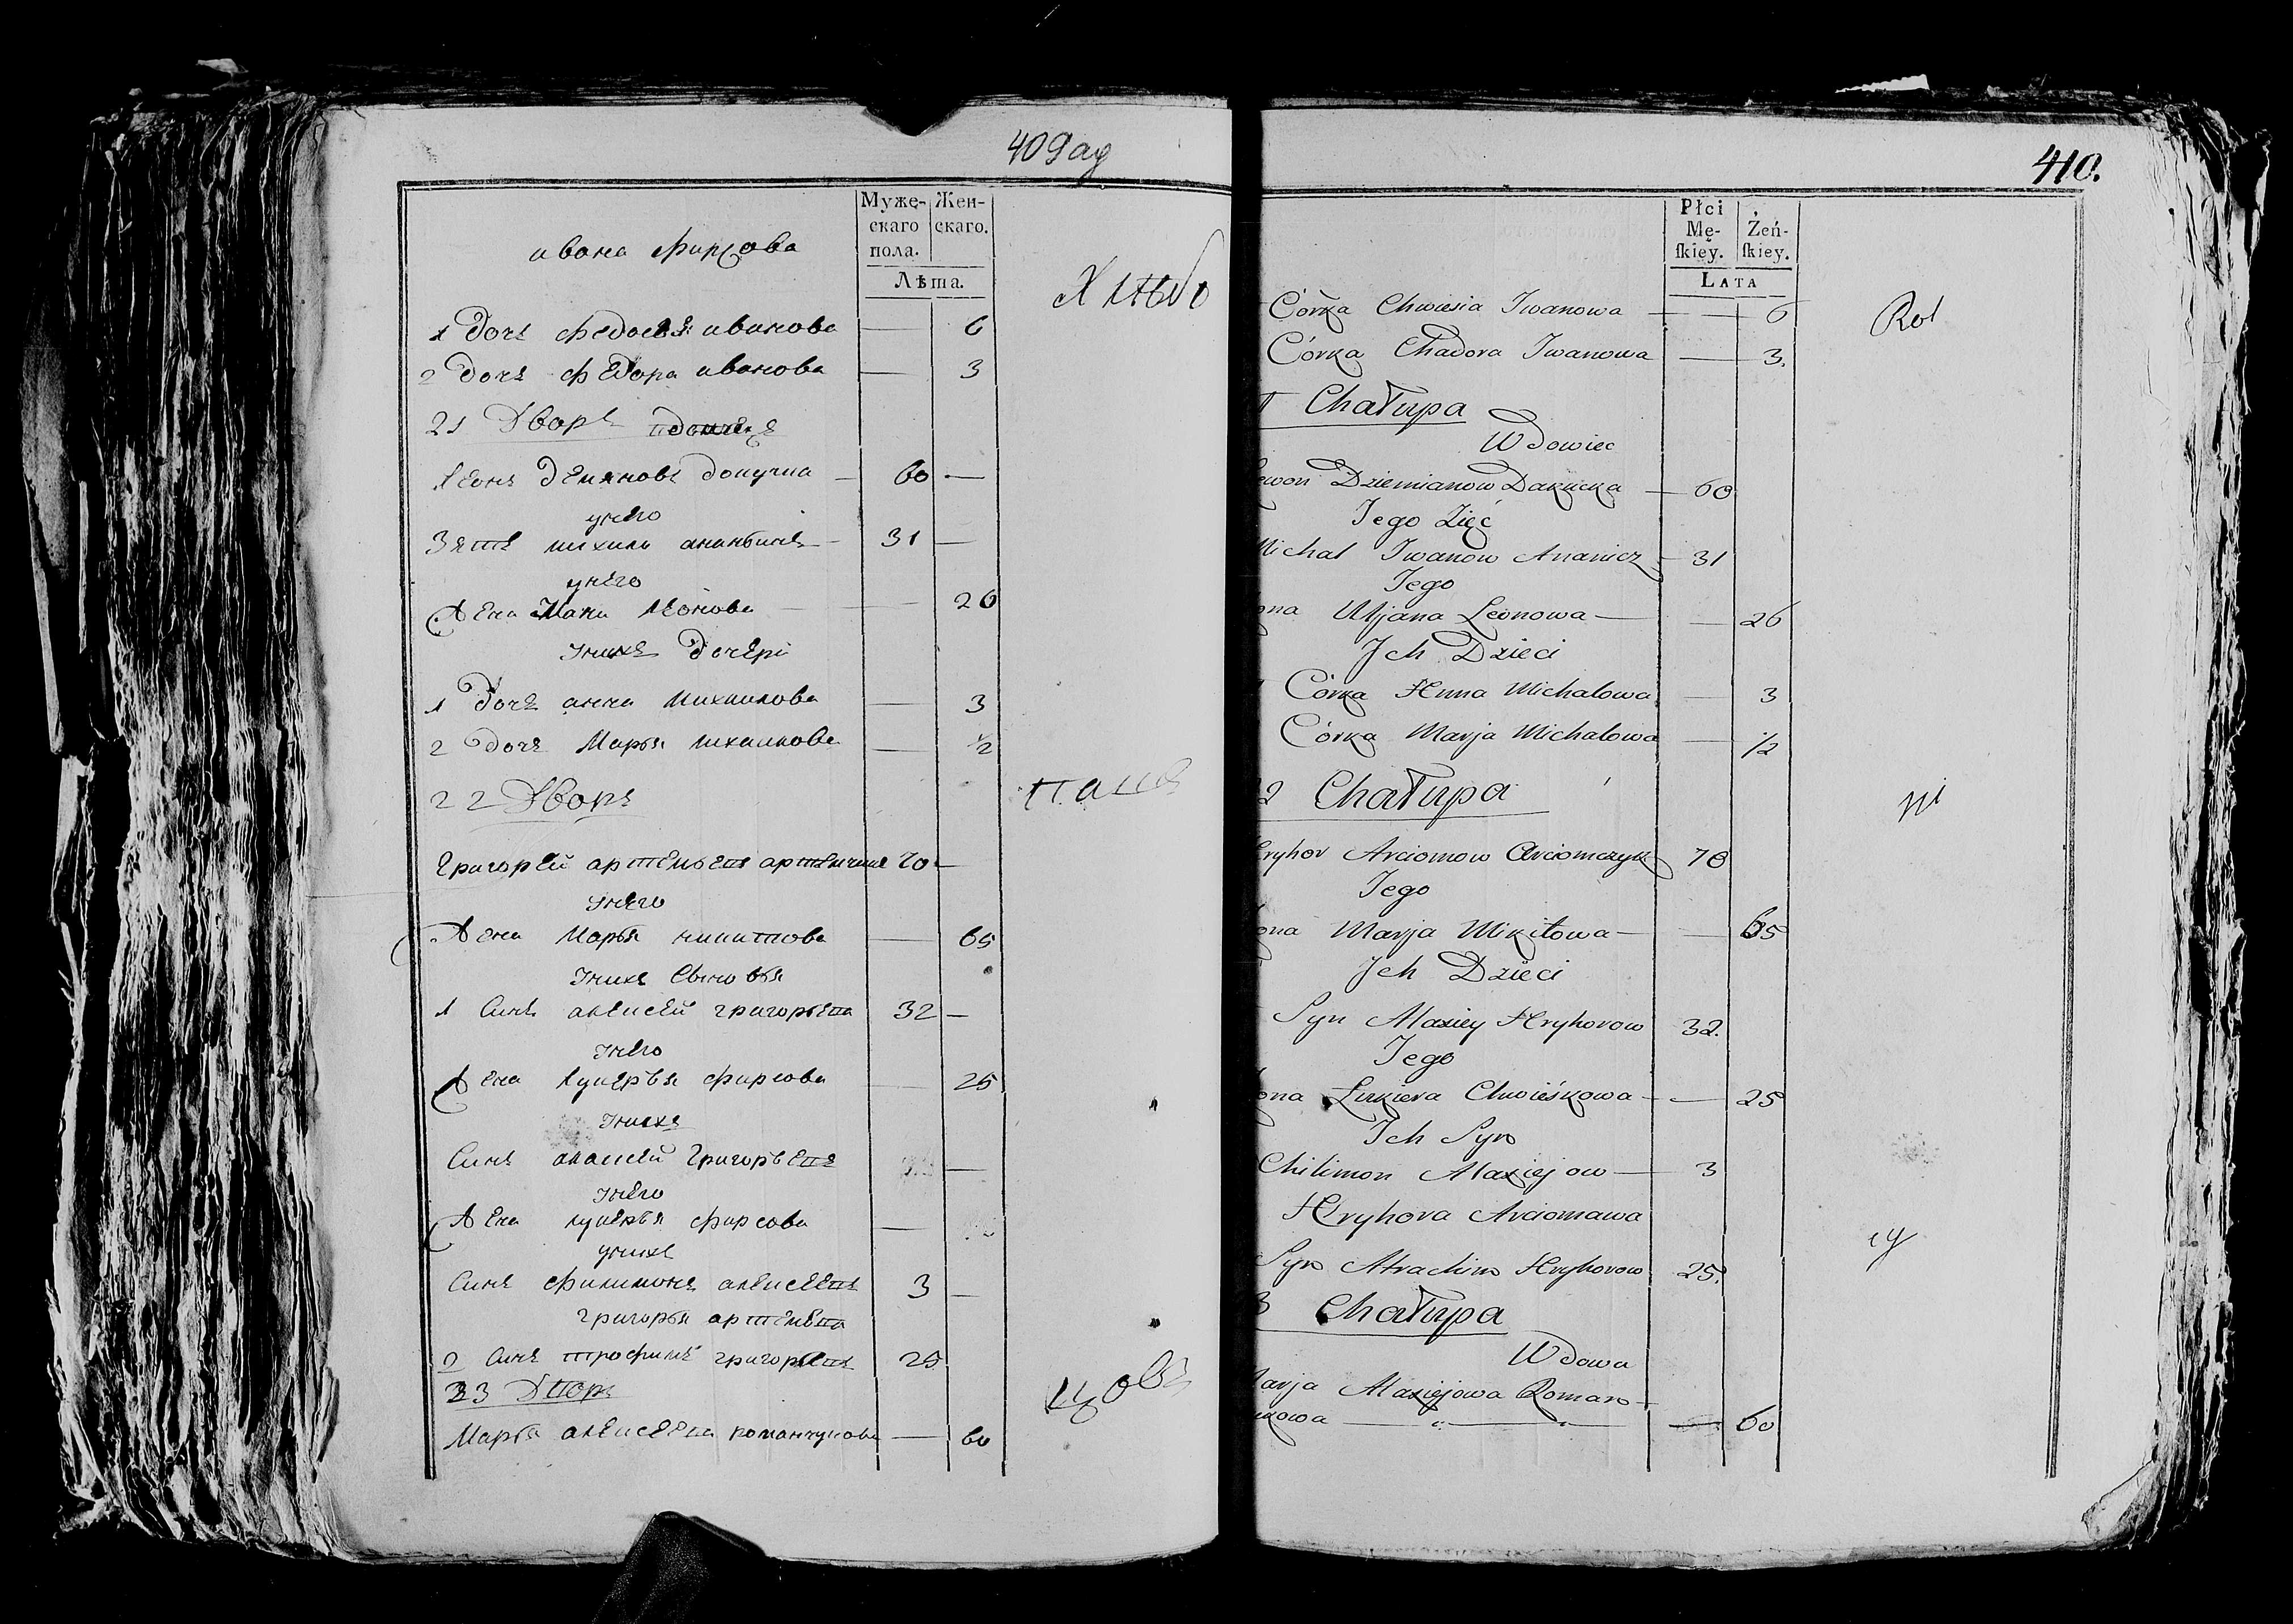 409 ад
Муже- Жен-
скаго скаго.
пола.
Лѣта.
ивана фирсова
Хлѣбо
1 Дочь федосья иванова — 6
2 дочь федора иванова — 3
21 Дворъ
Леонъ демяновъ докучка — 60 —
унего
Зять михаль ананьичъ — 31 —
унего
Жена Леонова — — 26
Унихъ Дочери
1 Дочь анна михаилова — 3
2 дочь Марья михаилова — 1/2
22 Дворъ
паш
Григорей артемьевъ 70 —
Унего
Жена Марья никитова — 65
Унихъ Сыновья
1 Синъ алексей григорьевъ 32 —
Унего
Жена Лукерья фирсова 25
Унихъ
Синъ алексей Григорьевъ —
Унего
Жена лукерья фирсова —
унихъ
Синъ филимонъ алексеевъ 3 —
григорья артемева
2 Синъ трофимъ григорьевъ 25
23 Дворъ
цовъ
Марья алексеева романчукова — 60
410.
Płci
Mę- Żeń-
ſkiey. ſkiey.
LATA
Córka Chwiesia Iwanowa — — 6
Rol
Córka Chadora Iwanowa — 3.
1 Chałupa
Wdowiec
ewon Dziemianow Dakucka — 60
Jego Zięć
Michał Iwanow Ananicz — 31
Jego
ona Uljana Leonowa — — 26
Jch Dzieci
1 Córka Anna Michałowa — 3
Córka Marja Michałowa — 1/2
2 Chałupa
ni
Hryhor Arciomow Arciomczyk 70
Jego
ona Marja Mikitowa — — 65
Jch Dzieci
Syn Alaxiey Hryhorow 32.
Jego
ona Łukiera Chwieśkowa — — 25
Jch Syn
Chilimon Alaxiejow — 3
Hryhora Arciomawa
cy
Syn Atrachim Hryhorow 25.
3 Chałupa
Wdowa
arja Alaxiejowa Roman-
kowa — — 60